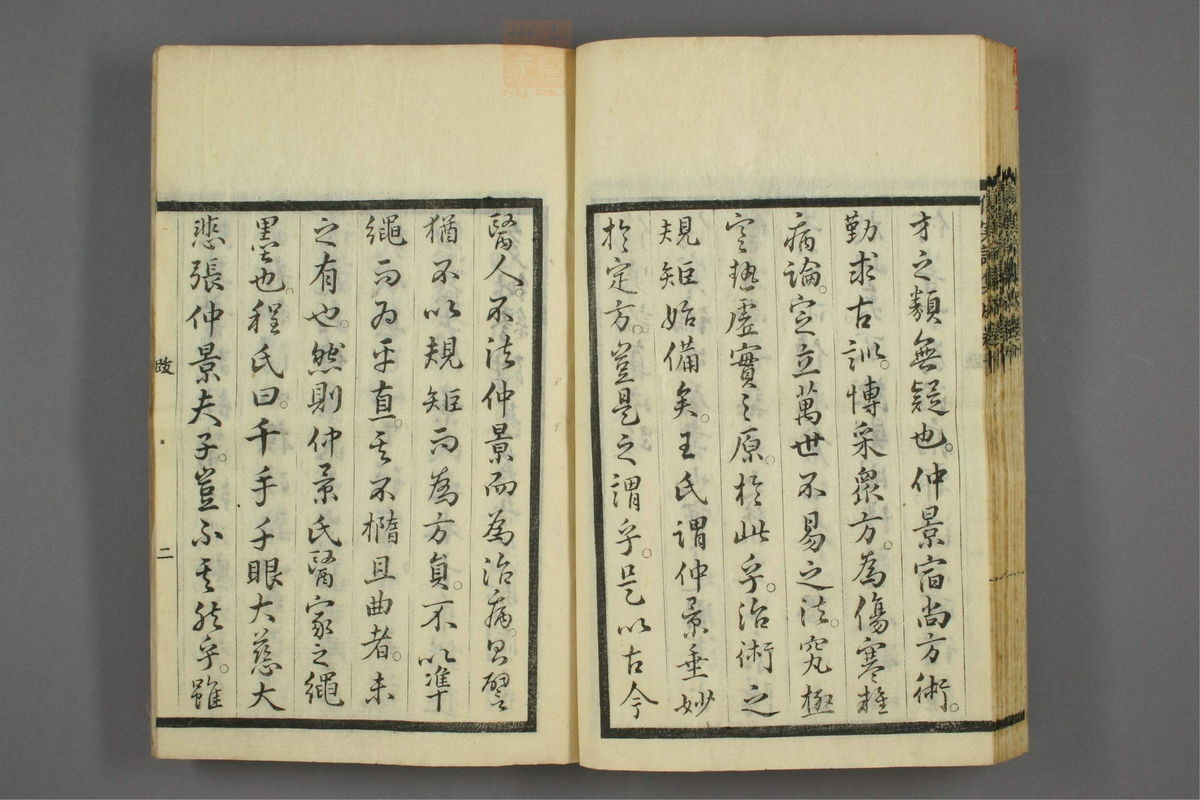 才之類無疑也。仲景宿尚方術。
勤求古訓。博采眾方。為傷寒雜
病論。定立萬世不易之法。究極
寒熱虛實之原。於此乎。治術之
規矩始備矣。王氏謂仲景垂妙
於定方。豈是之謂乎。是以古今
醫人。不法仲景而為治病。曰譬
猶不以規矩而為方員。不以準
繩而為平直。其不橢且曲者。未
之有也。然則仲景氏醫家之繩
墨也。程氏曰。千手千眼大慈大
悲張仲景夫子。豈不其然乎。雖
跋
二